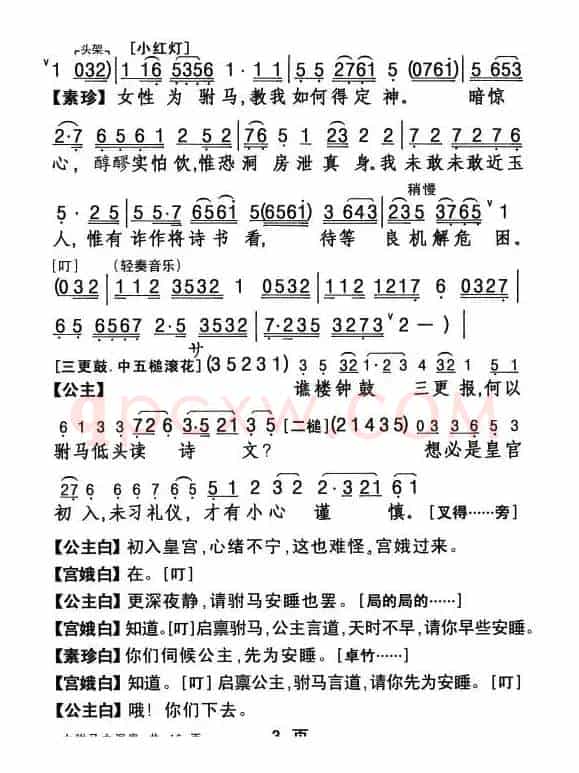 ┌头架┐ [小红灯]
ˇ1 032)|1 16 5356 1·11|5 5 2761 5 (0761)|5 653
【素珍】女性为驸马,教我如何得定神。 暗惊
2·7 6561 2 52|76 5 51 23 2 5|7 2 7276
心,醇醪实怕饮,惟恐洞房泄真身。我未敢未敢近玉
稍慢
5·25|55·7 6561 5(6561)3 643|235 3765 ˇ1
人,惟有诈作将诗书看, 待等良机解危困。
[叮] (轻奏音乐)
(032|112 3532 0132|112 1217 6 0327
65 6567 2·5 3532|7·235 3273 ˇ2 —)
サ
[三更鼓.中五槌滚花](35231) 3 5 32 1·2 3 4 32 1 5 1
【公主】 谯楼钟鼓 三更报,何以
6 1 3 3 726 3·5 21 35 [二槌](21435) 0 3 3 6 5 3
驸马低头读诗文? 想必是皇官
27 6 6 765 51 2 32 2·321 61
初入,未习礼仪,才有小心谨慎。[叉得……旁]
【公主白】初入皇宫,心绪不宁,这也难怪。宫娥过来。
【宫娥白】在。[叮]
【公主白】更深夜静,请驸马安睡也罢。[局的局的……]
【宫娥白】知道。[叮]启禀驸马,公主言道,天时不早,请你早些安睡。
【素珍白】你们伺候公主,先为安睡。[卓竹……]
【宫娥白】知道。[叮]启禀公主,驸马言道,请你先为安睡。[叮]
【公主白】哦!你们下去。
3 页